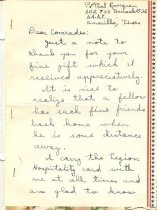 Dear Comrades:
Just a note to
thank you for your
fine gift which I
received appreciatively.
It is nice to
realize that a fellow
has such fine friends
back home when
he is some distance
away.
I carry the Legion
Hospitality card with
me at all times and
am glad to know